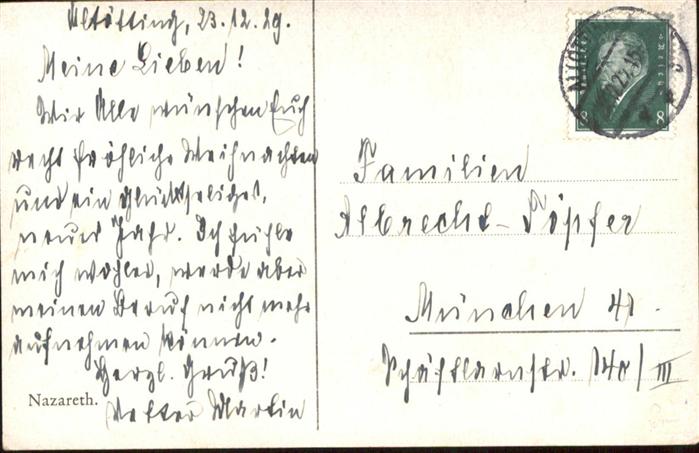 Altötting, 23.12.29.
Meine Lieben!
Wir Alle wünschen Euch
recht fröhliche Weihnachten
und ein glückseliges,
neues Jahr. Ich fühle
mich wohler, werde aber
meinen Beruf nicht mehr
aufnehmen können.
Herzl. Gruß!
Vetter Martin
Nazareth.
8 8
Familien
Albrecht-Töpfer
München 41.
Schäftlarnstr. 140/III